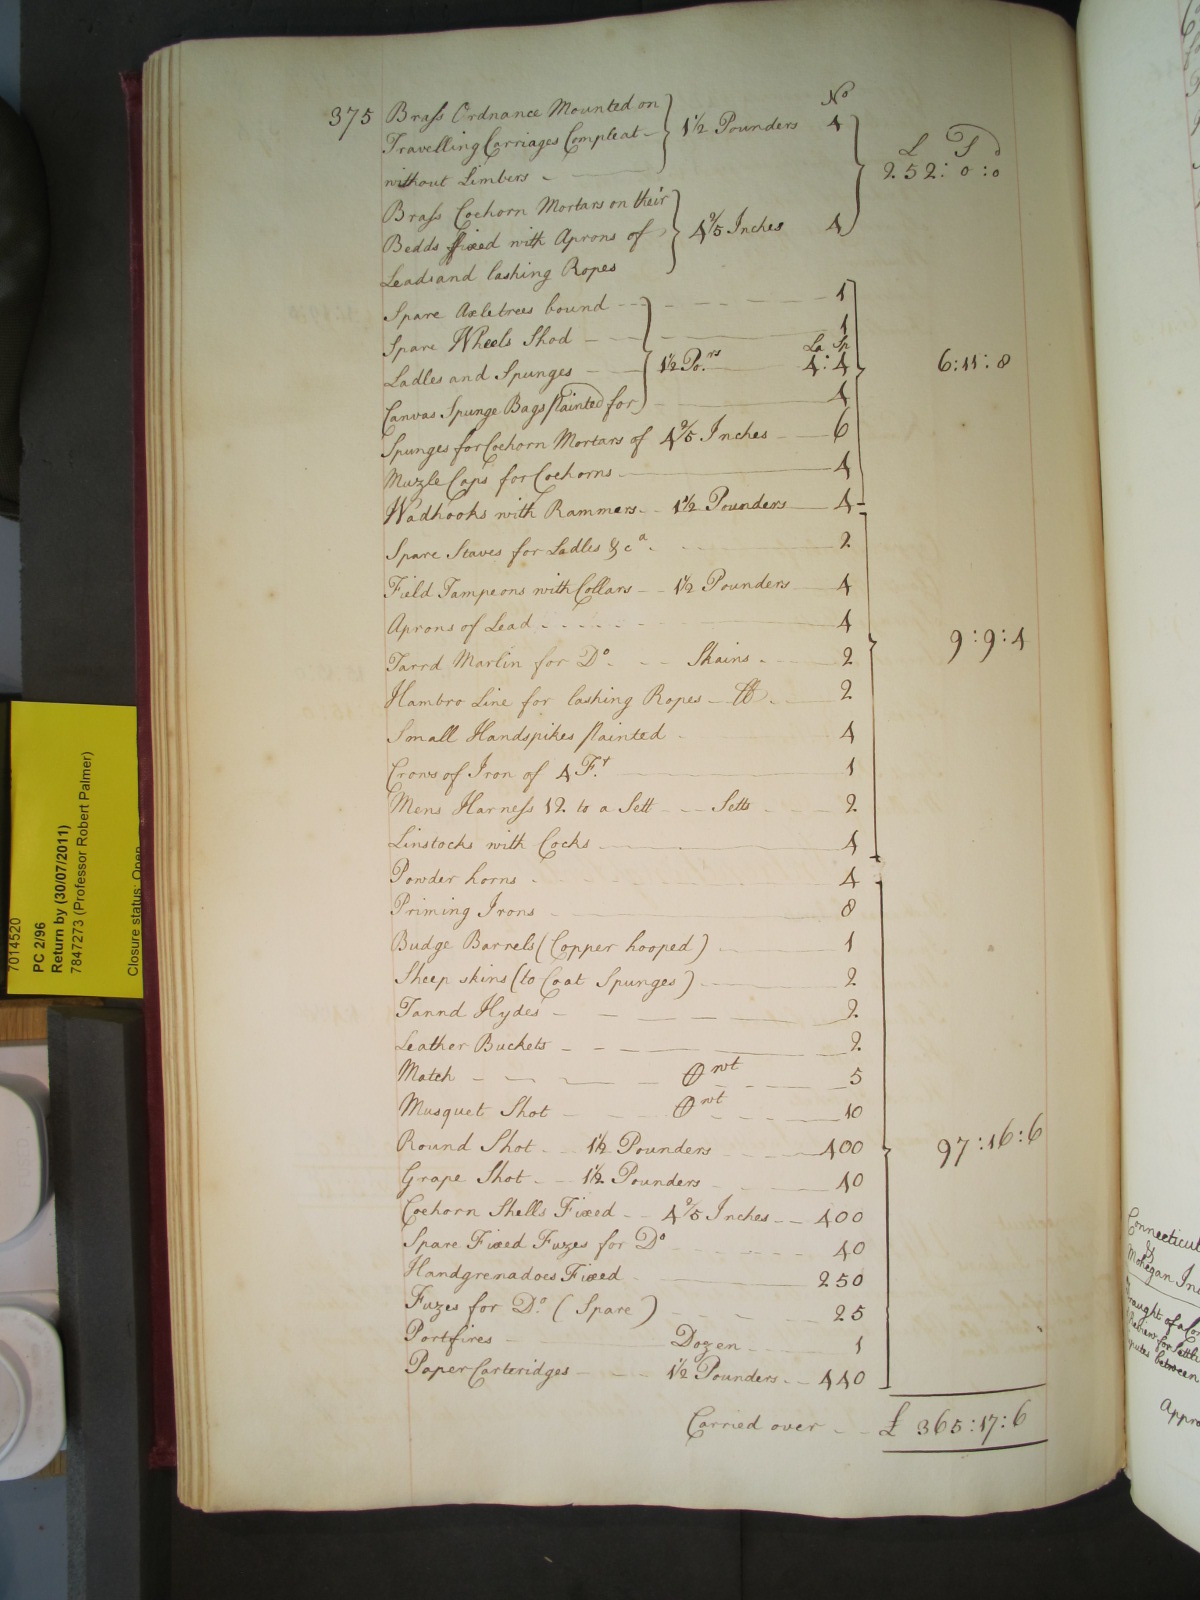 No
375 Brass Ordnance Mounted on
Travelling Carriages Compleat 1½ Pounders 4
without Limbers
£ S d
252: 0 : 0
Brass Coehorn Mortars on their
Bedds ffixed with Aprons of 4 2/5 Inches 4
Leads and lashing Ropes
Spare Axletrees bound 1
Spare Wheels Shod 1
La Sp
Ladles and Spunges 1½ Po.rs 4:4
6:11:8
Canvas Spunge Bags Painted for 4
Spunges for Coehorn Mortars of 4 2/5 Inches 6
Muzle Caps for Coehorns 4
Wadhooks with Rammers 1½ Pounders 4
Spare Staves for Ladles &ca. 2
Field Tampeons with Collars 1½ Pounders 4
Aprons of Lead 4
9:9:4
Tarrd Marlin for Do. Skains 2
Hambro Line for lashing Ropes lb 2
Small Handspikes Painted 4
Crows of Iron of 4 F.t 1
Mens Harness 12 to a Sett Setts 2
Linstocks with Cocks 4
Powder horns 4
Priming Irons 8
Budge Barrels (Copper hooped) 1
Sheep skins (to Coat Spunges) 2
Tannd Hydes 2
Leather Buckets 2
Match Cwt 5
Musquet Shot Cwt 10
Round Shot 1½ Pounders 400
97:16:6
Grape Shot 1½ Pounders 40
Coehorn Shells Fixed 4 2/5 Inches 400
Spare Fixed Fuzes for Do 40
Handgrenadoes Fixed 250
Fuzes for Do. (Spare) 25
Portfires Dozen 1
Paper Carteridges 1½ Pounders 440
Carried over £ 365:17:6
7014520
PC 2/96
Return by (30/07/2011)
7847273 (Professor Robert Palmer)
Closure status: Open
Connecticut
&
Mohegan In
raught of a Co
Review for Settl
putes between
Appro